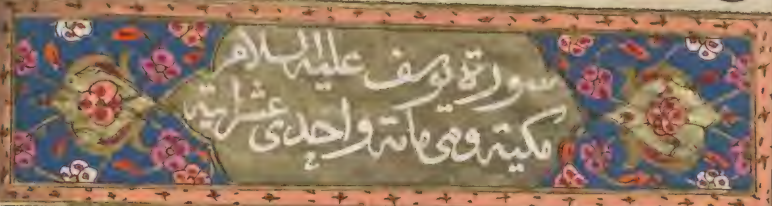 سورة يوسف عليه السلام
مكية وهي مائة واحدى عشر اية